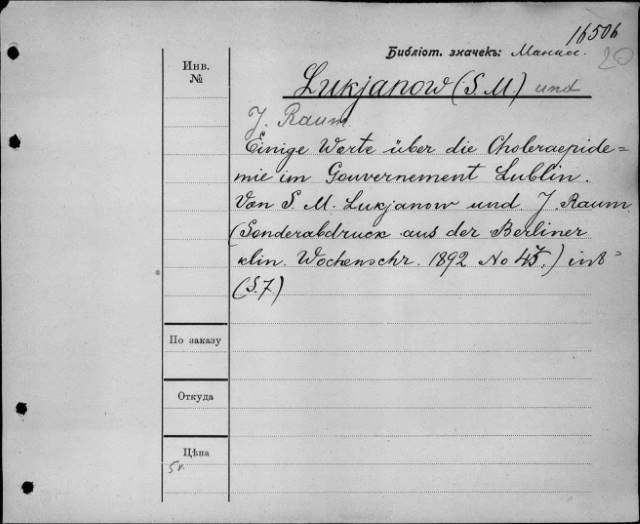 16506
Библіот. значекъ: Манасс.
20
Инв.
№
Lukjanow (S M.) und
J. Raum
Einige Worte über die Choleraepide=
mie im Gouvernement Lublin.
Von S M. Lukjanow und J. Raum
(Sonderabdruck aus der Berliner
klin. Wochenschr. 1892 No 45.) in 8°
(S. 7)
По заказу
Откуда
Цѣна
5к.